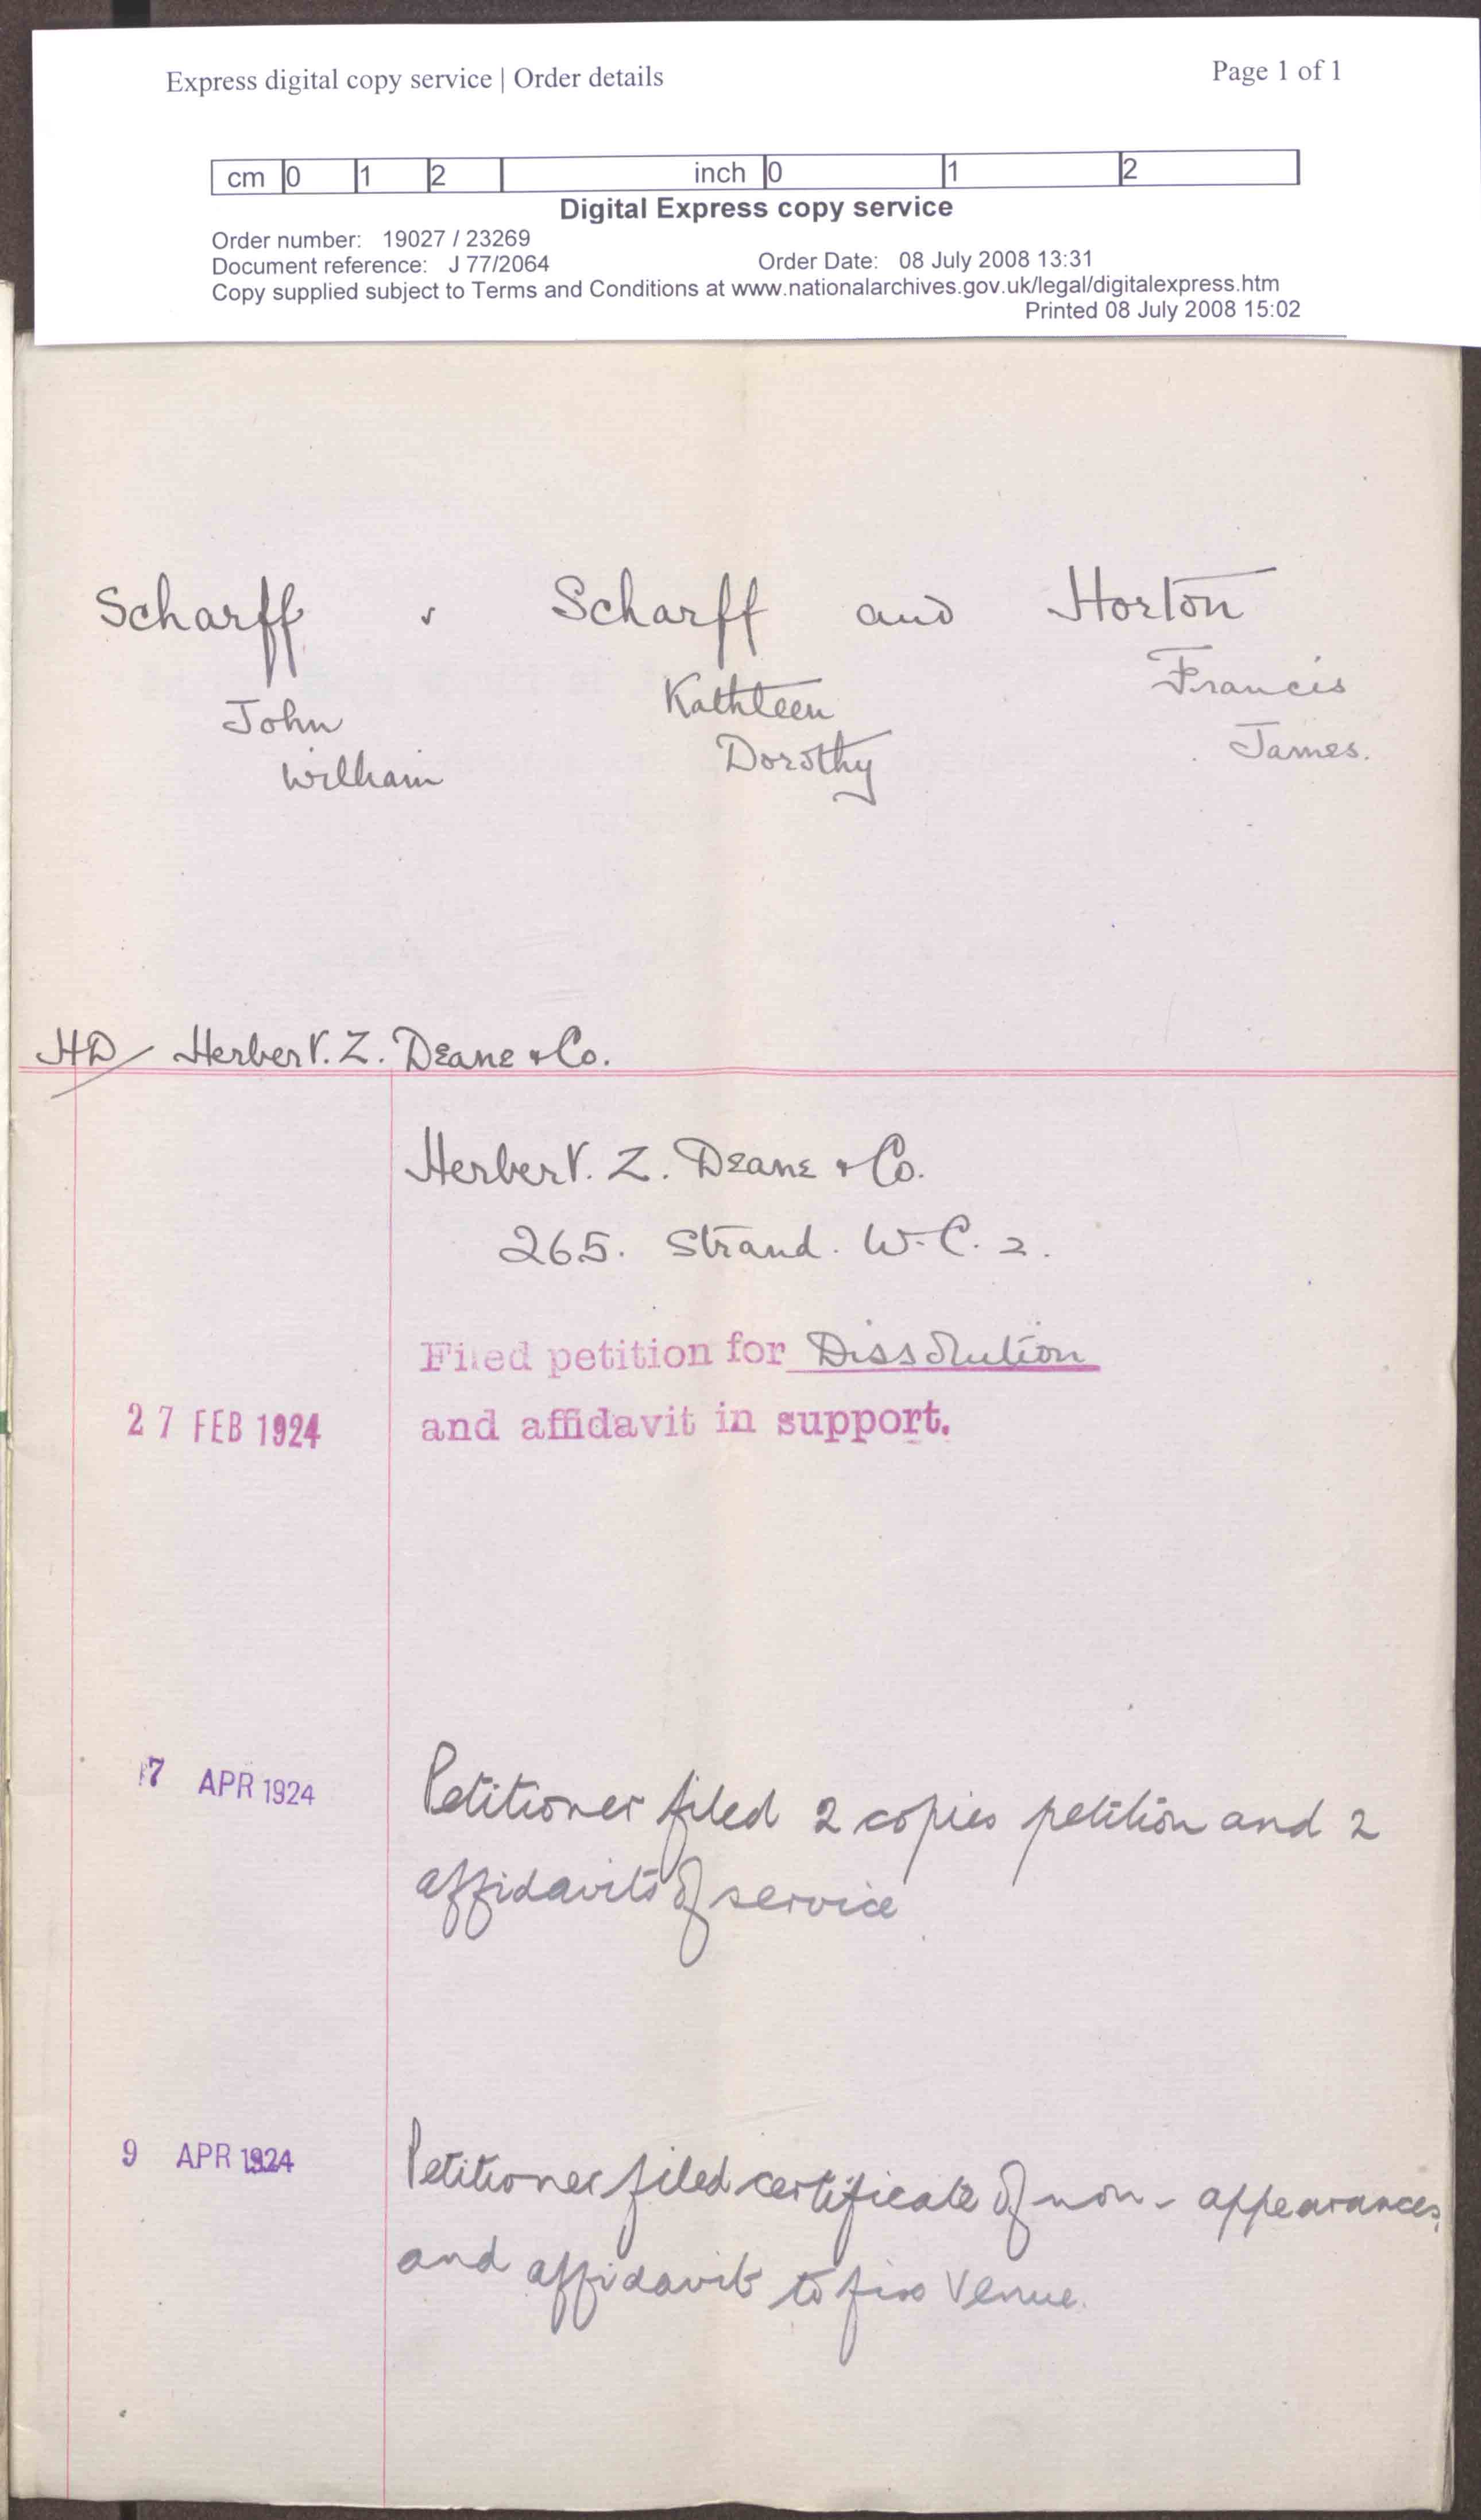 Express digital copy service | Order details
Page 1 of 1
cm 0 1 2 inch 0 1 2
Digital Express copy service
Order number: 19027 / 23269
Document reference: J 77/2064
Order Date: 08 July 2008 13:31
Copy supplied subject to Terms and Conditions at www.nationalarchives.gov.uk/legal/digitalexpress.htm
Printed 08 July 2008 15:02
Scharff v Scharff and Horton
John
William
Kathleen
Dorothy
Francis
James.
HD Herbert. Z. Deane & Co.
Herbert. Z. Deane & Co.
265. Strand. W.C. 2.
Filed petition for Dissolution
27 FEB 1924 and affidavit in support.
7 APR 1924 Petitioner filed 2 copies petition and 2
affidavits of service
9 APR 1924 Petitioner filed certificate of non-appearances,
and affidavit to fix Venue.